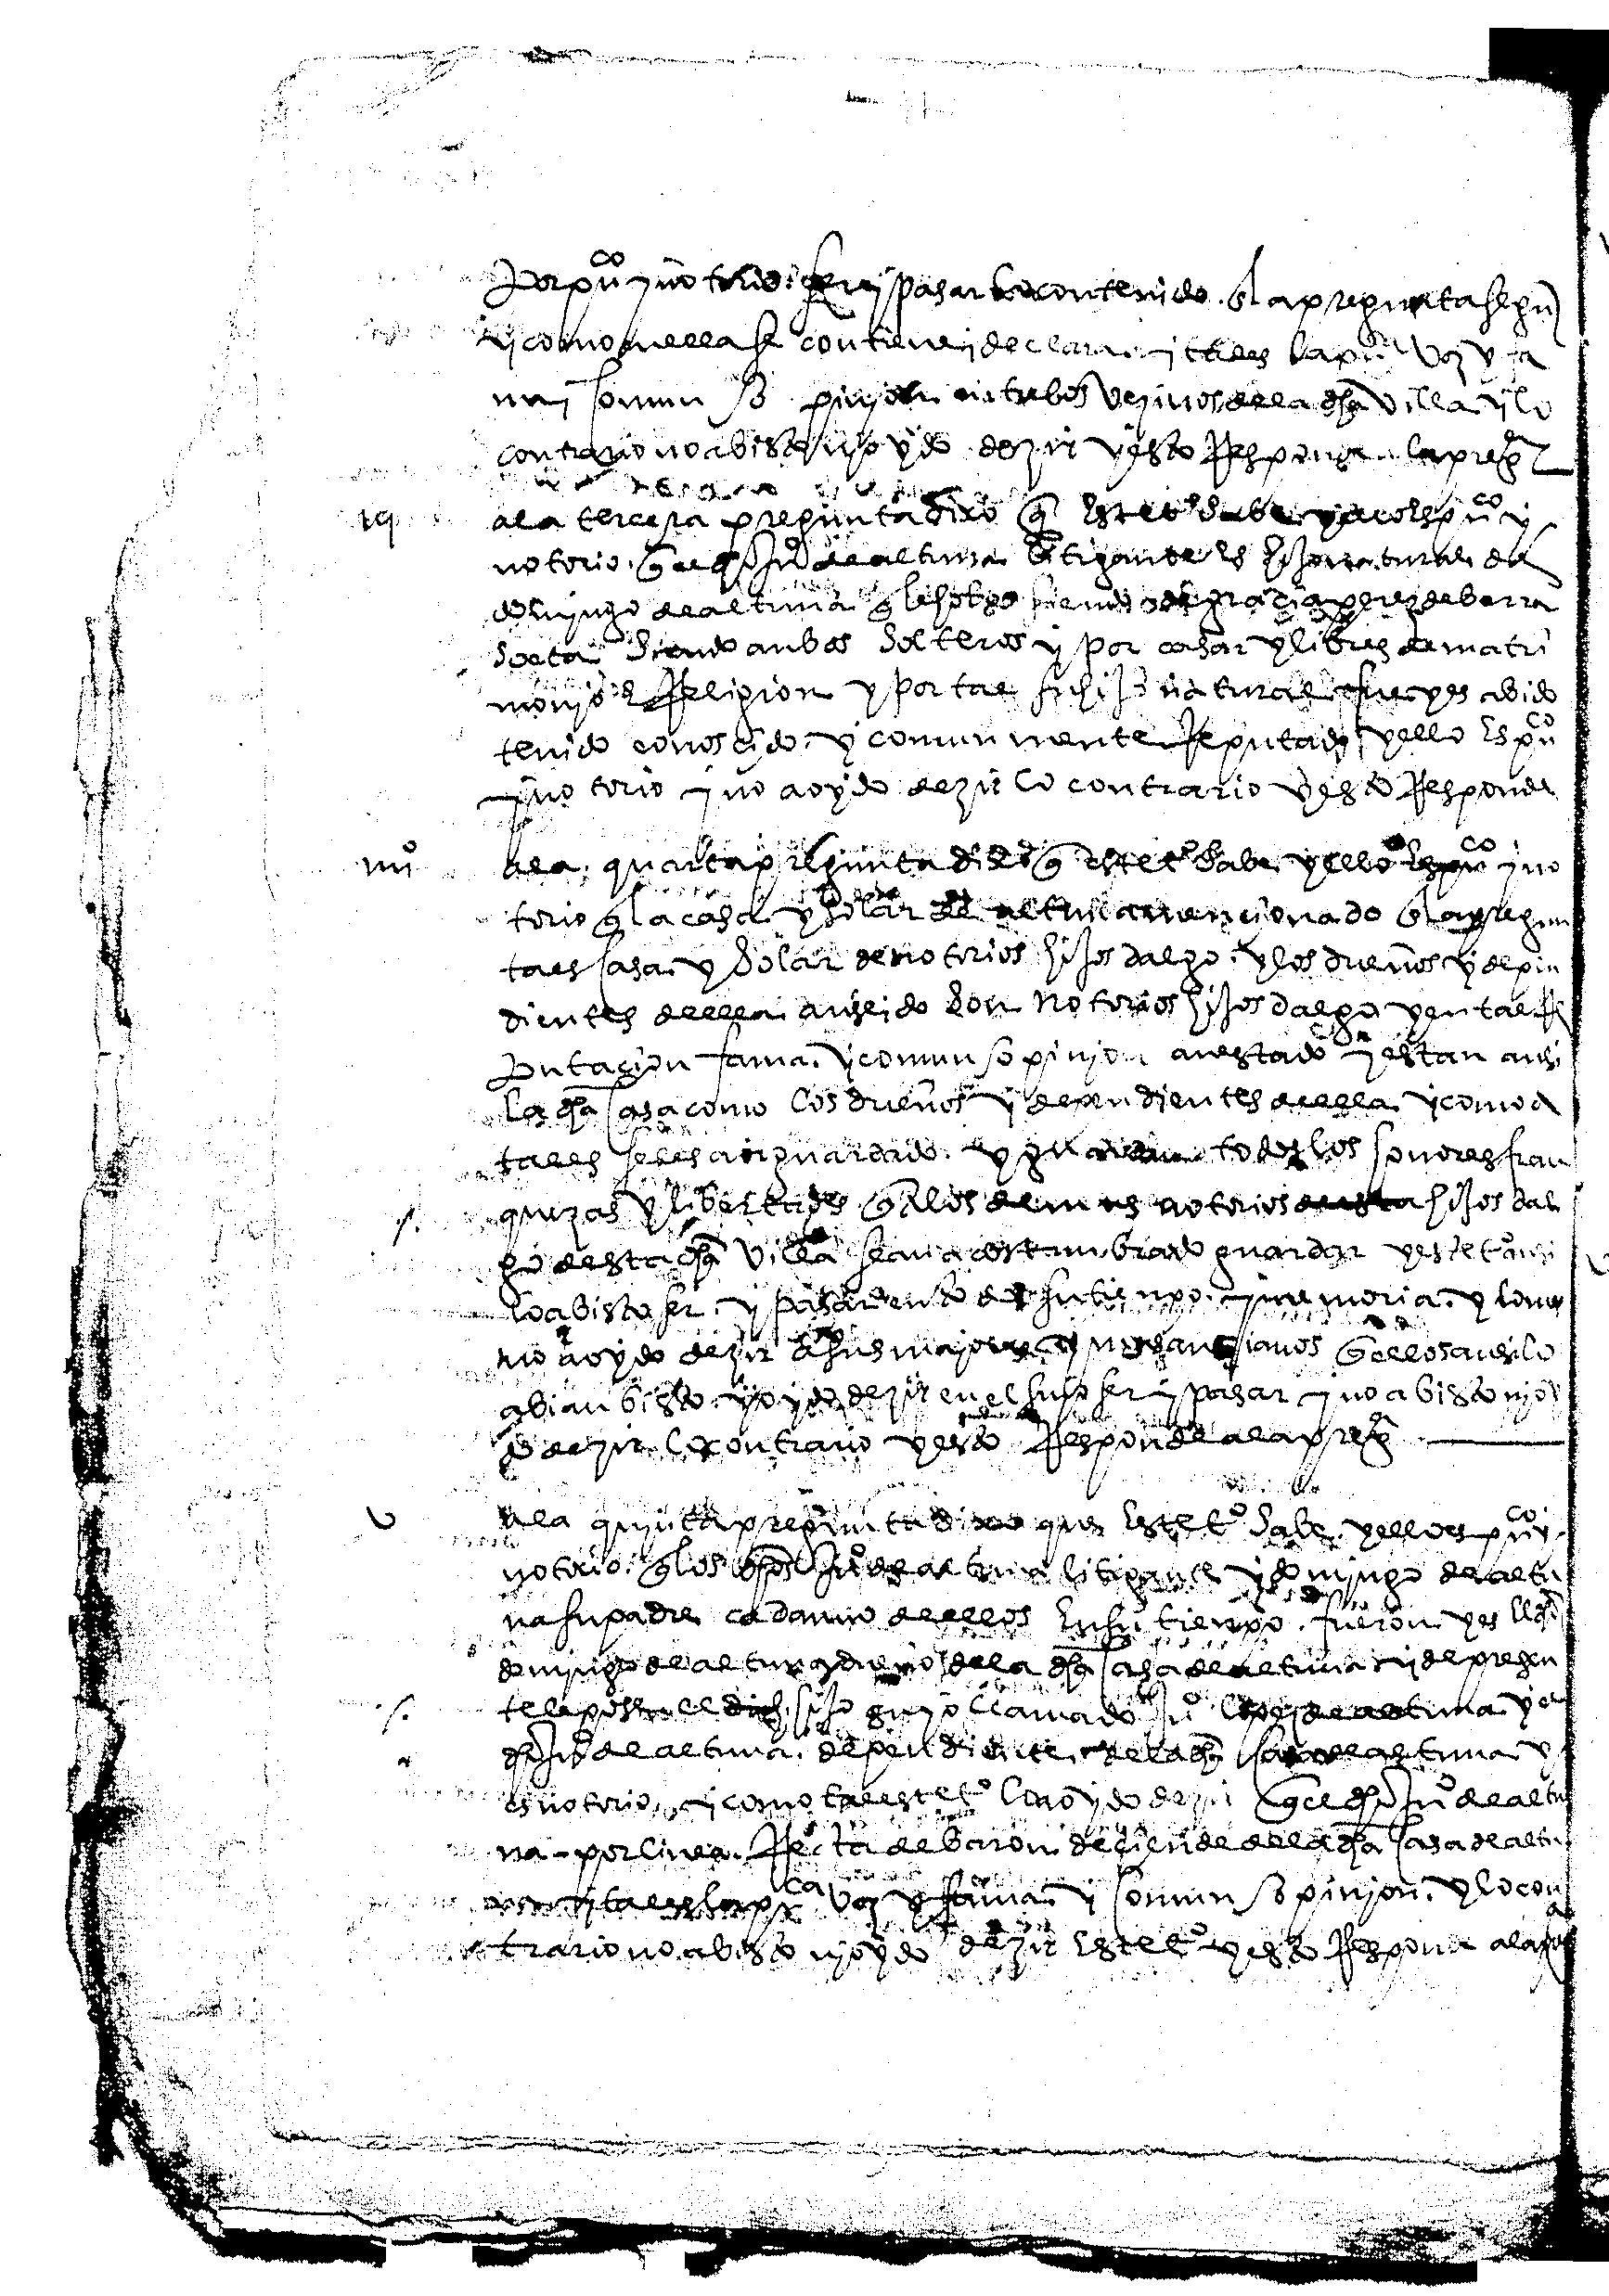 por puco y notorio ser y pasar lo contenido en la pregunta segun
y como en ella se contiene y declara y tal es la pu voz y fa
ma y comun so pinion entre los vezinos de la dha villa y lo
contrario no a bisto ni oydo dezir y esto Responde a la pregta
iij a la tercera pregunta dixo que este to sabe y ello es puco y
notorio que el dho Juo de altuna litigante es hijo natural de
domingo de altuna que le hobo en de gracia perez de barra
soeta siendo anbos solteros y por casar y libres de matri
monjo e Religion y por tal su hijo natural fue y es abido
tenido conoscido y comunmente Reputado y ello es puco
y notorio y no a oydo dezir lo contrario y esto Responde
iiijo a la quarta pregunta dixo que este to sabe y ello es puco y no
torio que la casa y solar de altuna mencionado en la pregun
ta es casa y solar de notorios hijos dalgo y los dueños y depen
dientes de ella an seido e son notorios hijos dalgo y en tal Re
putacion fama y comun so pinion an estado y estan ansi
la dha casa como los dueños y dependientes de ella y como a
tales se les a guardado y guardan todos los honores fran
quezas y libertades que a los demas notorios hijos dal
go desta dha villa se an acostumbrado guardar y este to ansi
lo a bisto ser y pasar en todo su tienpo y memoria y lo mis
mo a oydo dezir a sus mayores y mas ancianos que ellos ansi lo
abian bisto y oydo dezir en el suyo ser y pasar y no a bisto ni oy
do dezir lo contrario y esto Responde a la pregta
v a la quinta pregunta dixo que este to sabe y ello es puco y
notorio que los dhos Juo de altuna litigante y domingo de altu
na su padre cada uno de ellos en su tienpo fueron y es el dho
domingo de altuna dueño de la dha casa de altuna y de presen
te le posee el dicho hijo suyo llamado Juo lopez de altuna y el
dho Juo de altuna dependiente de la dha casa de altuna y
es notorio y como tal este to lo a oydo dezir que el dho Juo de altu
na por linea Recta de baron deciende de la dha casa de altu
na y tal es la puca voz y fama y comun so pinion y lo con
trario no a bisto ni oydo dezir este to y esto Responde a la preg